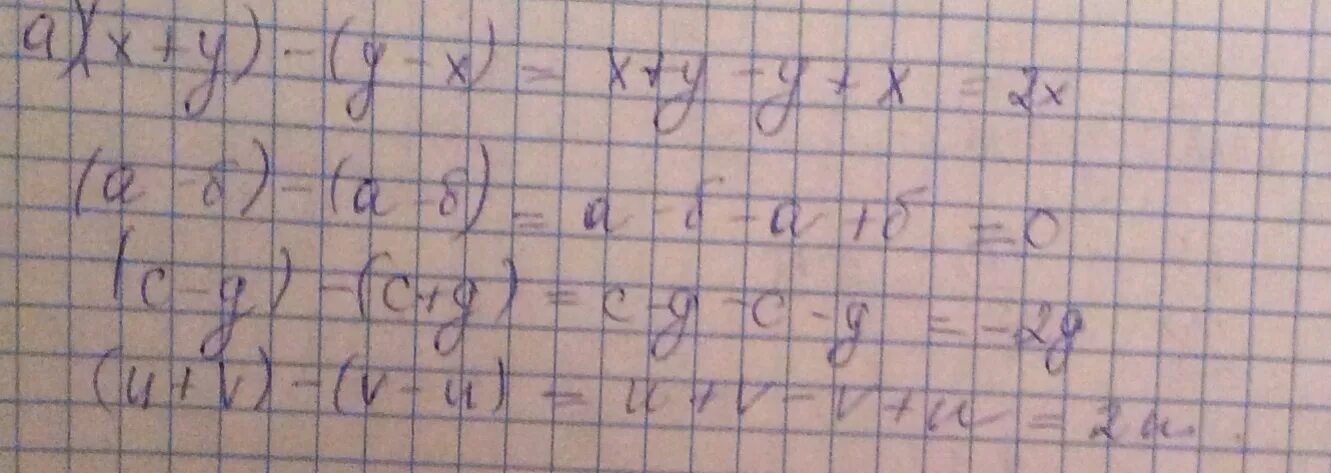 а)(x+y)-(y-x)=x+y-y+x=2x
(a-б)-(a-б)=a-б-a+б=0
(c-g)-(c+g)=c-g-c-g=-2g
(u+v)-(v-u)=u+v-v+u=2u.